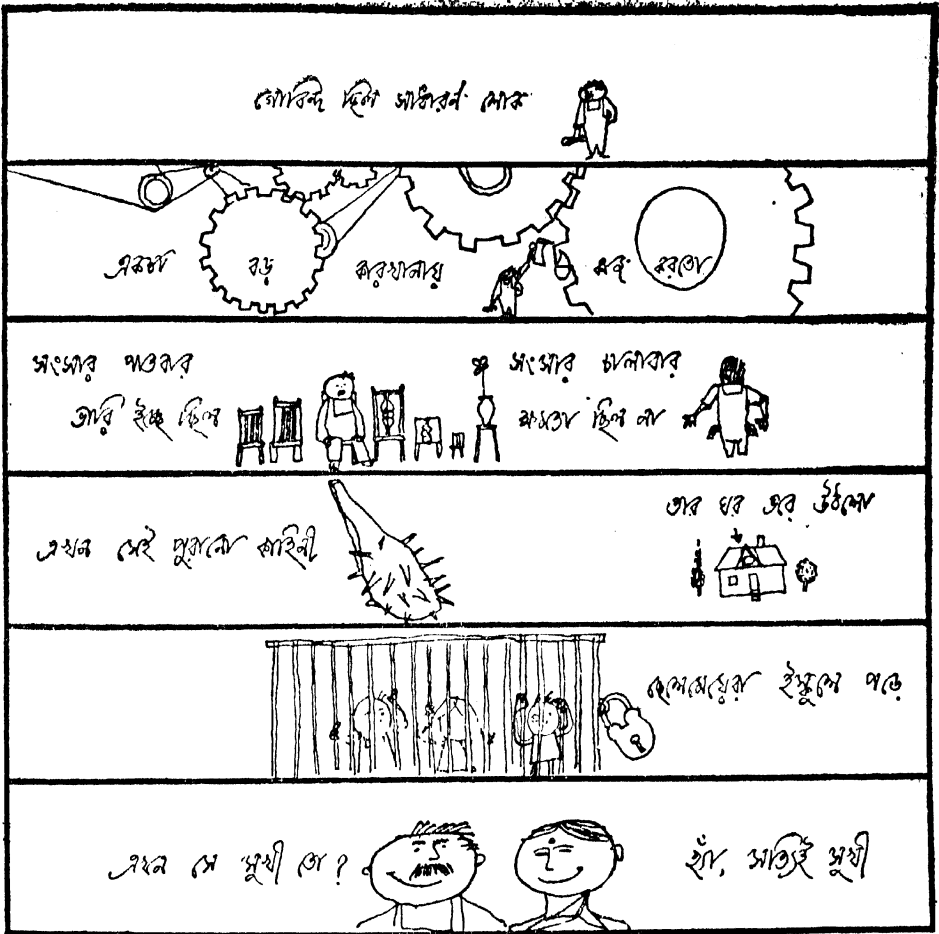 গোবিন্দ ছিল সাধারণ লোক
একটা বড় কারখানায় কাজ করতো
সংসার পাতবার
ভারি ইচ্ছে ছিল
সংসার চালাবার
ক্ষমতা ছিল না
এখন সেই পুরানো কাহিনী
তার ঘর ভরে উঠলো
ছেলেমেয়েরা ইস্কুলে পড়ে
এখন সে সুখী তো?
হ্যাঁ, সত্যিই সুখী